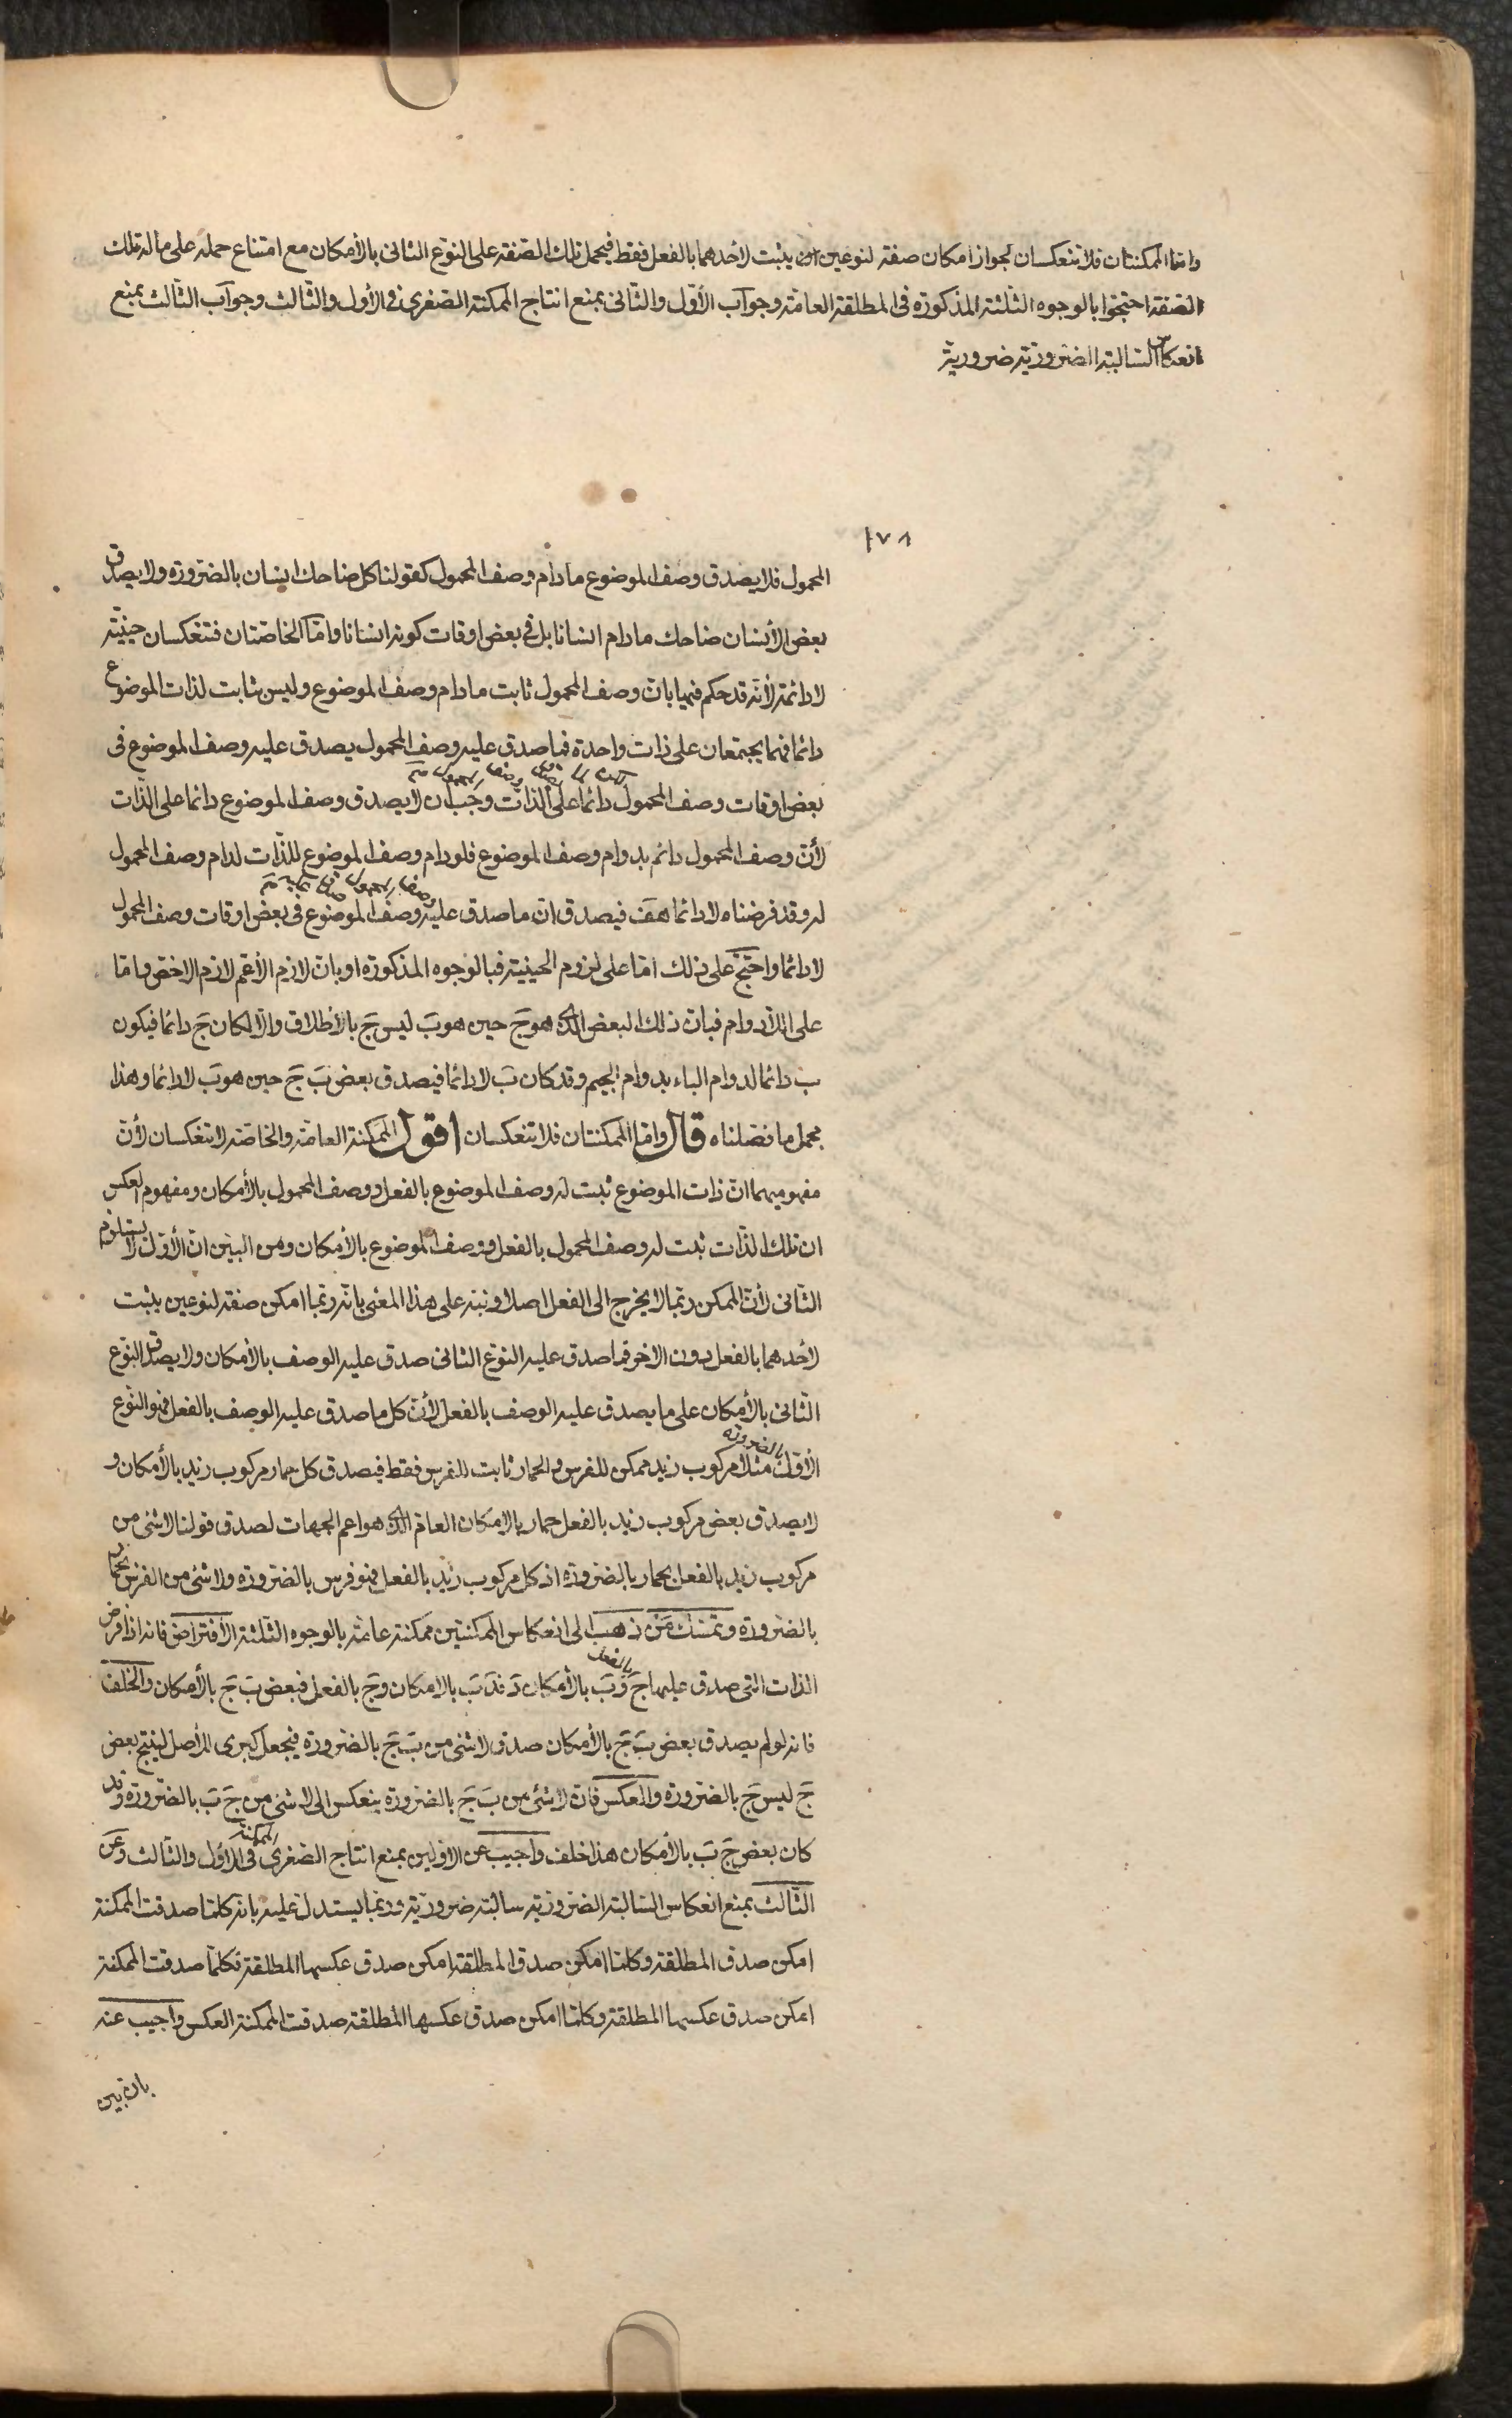 وامّا الممكنتان فلا تنعكسان لجواز امكان صفة لنوعين يثبت لأحدهما بالفعل فقط فيحمل تلك الصفة على النوع الثانى بالأمكان مع امتناع حمله على ماله تلك
الصفة احتجّوا بالوجوه الثلثة المذكورة فى المطلقة العامة وجواب الأوّل والثانى بمنع انتاج الممكنة الصغرى فى الأول والثالث وجواب الثالث بمنع
انعكاس السالبة الضرورية ضرورية
١٧٨
المحمول فلا يصدق وصف الموضوع مادام وصف المحمول كقولنا كل ضاحك انسان بالضرورة ولا يصدق
بعض الأنسان ضاحك مادام انسانا بل فى بعض اوقات كونه انسانا وامّا الخاصّتان فتنعكسان حينيّة
لا دائمة لأنّه قد حكم فيهما بانّ وصف المحمول ثابت مادام وصف الموضوع وليس بثابت لذات الموضوع
دائما فهما يجتمعان على ذات واحدة فما صدق عليه وصف المحمول يصدق عليه وصف الموضوع فى
بعض اوقات وصف المحمول دائما على الذات وجب ان لا يصدق وصف الموضوع دائما على الذّات
لأنّ وصف المحمول دائم بدوام وصف الموضوع فلو دام وصف الموضوع للذّات لدام وصف المحمول
له وقد فرضناه لا دائما هف فيصدق انّ ما صدق عليه وصف الموضوع فى بعض اوقات وصف المحمول
لا دائما واحتجّ على ذلك امّا على لزوم الحينية فبالوجوه المذكورة او بانّ لازم الأعم لازم الاخصّ وامّا
على اللّادوام فبانّ ذلك البعض الذى هو جَ حين هو بَ ليس جَ بالأطلاق والّا لكان جَ دائما فيكون
ب دائما لدوام الباء بدوام الجيم وقد كان بَ لا دائما فيصدق بعض بَ جَ حين هو بَ لا دائما وهذا
مجمل ما فصّلناه قال وامّا الممكنتان فلا تنعكسان اقول الممكنة العامّة والخاصّة لا تنعكسان لأنّ
مفهوميهما انّ ذات الموضوع ثبت له وصف الموضوع بالفعل ووصف المحمول بالأمكان ومفهوم العكس
ان تلك الذّات ثبت له وصف المحمول بالفعل ووصف الموضوع بالأمكان ومن البيّن انّ الأوّل لا يستلزم
الثانى لأنّ الممكن ربّما لا يخرج الى الفعل اصلا ونبّه على هذا المعنى بانّه ربّما امكن صفة لنوعين يثبت
لأحدهما بالفعل دون الاخر فما صدق عليه النوع الثانى صدق عليه الوصف بالأمكان ولا يصدق النوع
الثّانى بالأمكان على ما يصدق عليه الوصف بالفعل لأنّ كل ما صدق عليه الوصف بالفعل فهو النّوع
بالضرورة
الأوّل مثلا مركوب زيد ممكن للفرس والحمار ثابت للفرس فقط فيصدق كل حمار مركوب زيد بالأمكان و
لا يصدق بعض مركوب زيد بالفعل حمار بالامكان العامّ الذى هو اعم الجهات لصدق قولنا لا شئ من
مركوب زيد بالفعل بحمار بالضرورة اذ كل مركوب زيد بالفعل فهو فرس بالضرورة ولا شئ من الفرس بحمار
بالضرورة وتمسّك مَن ذهب الى انعكاس الممكنتين ممكنة عامّة بالوجوه الثلثة الأفتراض فانه اذا فرض
بالفعل
الذات التى صدق عليها جَ وبَ بالأمكان دَ فدَ بَ بالامكان وجَ بالفعل فبعض بَ جَ بالأمكان والخلف
فانه لو لم يصدق بعض بَ جَ بالأمكان صدق لا شئ من بَ جَ بالضرورة فيجعل كبرى للأصل لينتج بعض
جَ ليس جَ بالضرورة والعكس فانّ لا شئ من بَ جَ بالضرورة ينعكس الى لا شئ من جَ بَ بالضرورة وقد
الممكنة
كان بعض جَ بَ بالأمكان هذا خلف واجيب عن الاوّلين بمنع انتاج الصغرى فى الأوّل والثالث وعن
الثّالث بمنع انعكاس السّالبة الضرورية سالبة ضروريّة وربّما يستدلّ عليه بانه كلّما صدقت الممكنة
امكن صدق المطلقة وكلّما امكن صدق المطلقة امكن صدق عكسها المطلقة فكلّما صدقت الممكنة
امكن صدق عكسها المطلقة وكلّما امكن صدق عكسها المطلقة صدقت الممكنة العكس واجيب عنه
بان بين